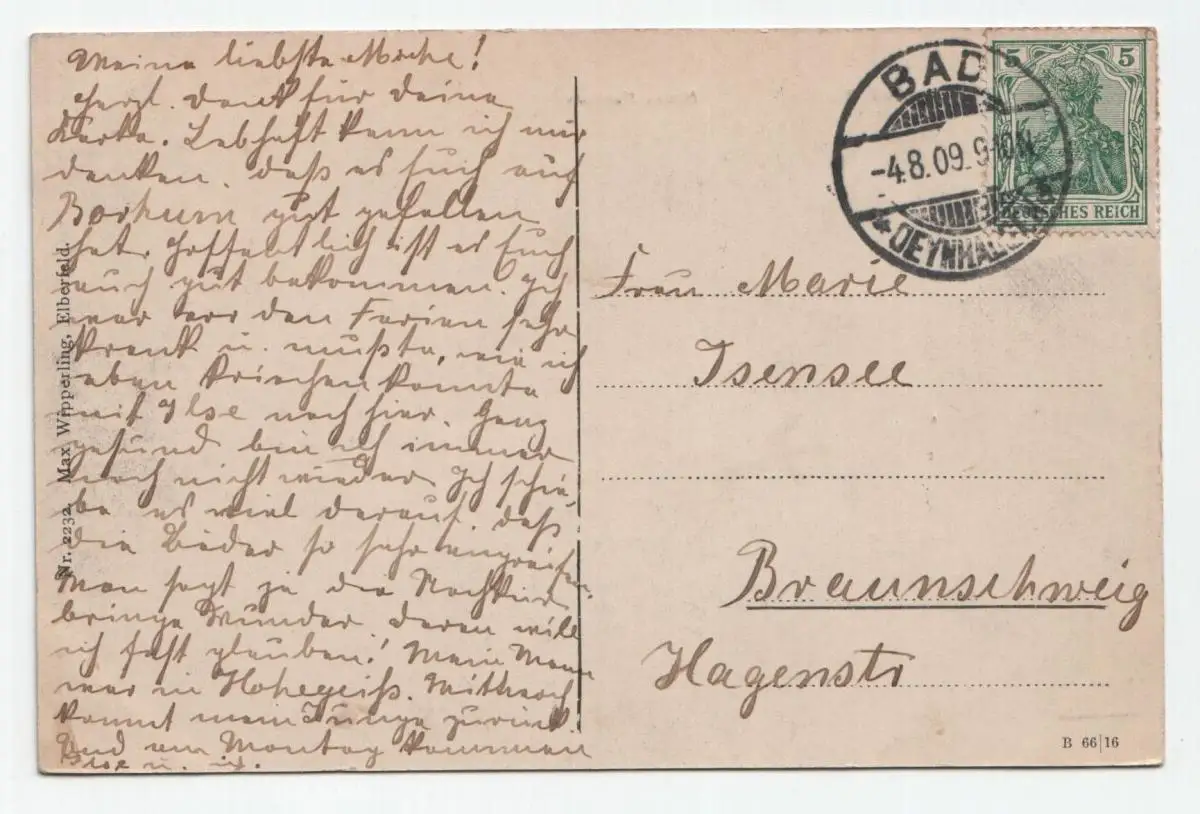 Meine liebste Mieke!
Herzl. Dank für Deine
Karte. Lebhaft kann ich mir
denken, daß es Euch auf
Borkum gut gefallen
hat. Hoffentlich ist es Euch
auch gut bekommen. Ich
war vor den Ferien sehr
krank u. mußte, wie ich
eben kriechen konnte
mit Ilse nach hier. Ganz
gesund bin ich immer
noch nicht wieder. Ich schie-
be es viel darauf, daß
die Bäder so sehr angreifen.
Man sagt ja die Nachkur
bringe Wunder, daran will
ich fest glauben! Mein Mann
war in Hohegeiß. Mittwoch
kommt mein Junge zurück
Und am Montag kommen
Ilse u. ich.
Nr. 2232. Max Wipperling, Elberfeld.
BAD
-4.8.09. 9-10N.
* OEYNHAUSEN
5 5
DEUTSCHES REICH
Frau Marie
Isensee
Braunschweig
Hagenstr
B 66|16